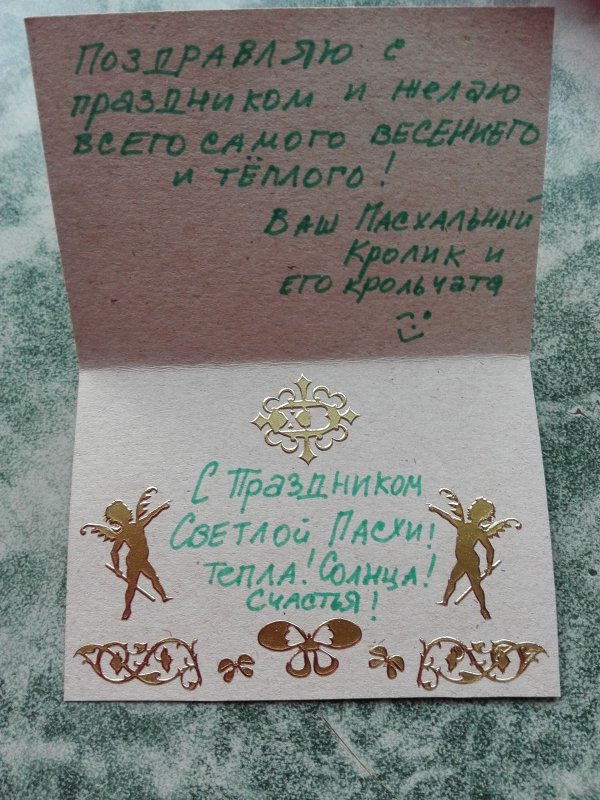 ПОЗДРАВЛЯЮ С
ПРАЗДНИКОМ И ЖЕЛАЮ
ВСЕГО САМОГО ВЕСЕННЕГО
И ТЁПЛОГО!
ВАШ ПАСХАЛЬНЫЙ
КРОЛИК И
ЕГО КРОЛЬЧАТА
ХВ
С ПРАЗДНИКОМ
СВЕТЛОЙ ПАСХИ!
ТЕПЛА! СОЛНЦА!
СЧАСТЬЯ!